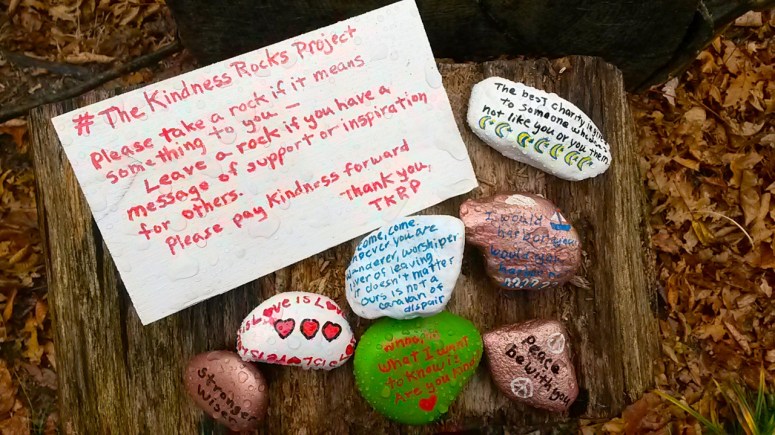 #The Kindness Rocks Project
Please take a rock if it means
something to you_
Leave a rock if you have a
message of support or inspiration
for others.
Please pay Kindness forward
Thank you,
TKRP
The best charity is
to someone
not like you or you
them
Come, come,
whoever you are
wanderer, worshiper
lover of leaving
it doesn't matter
Ours is not a
caravan of
despair
I would
harbor you
would you
harbor
????
is Love is Lo
What I want
to know is
Are you kind
Peace
be with you
stronger
wiser